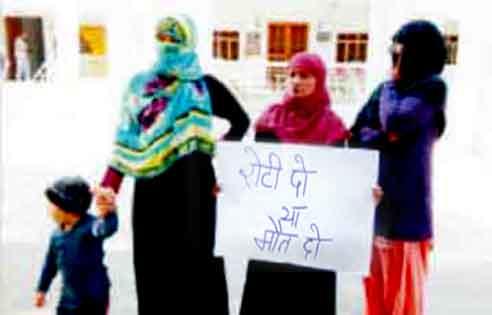 रोटी दो
या
मौत दो